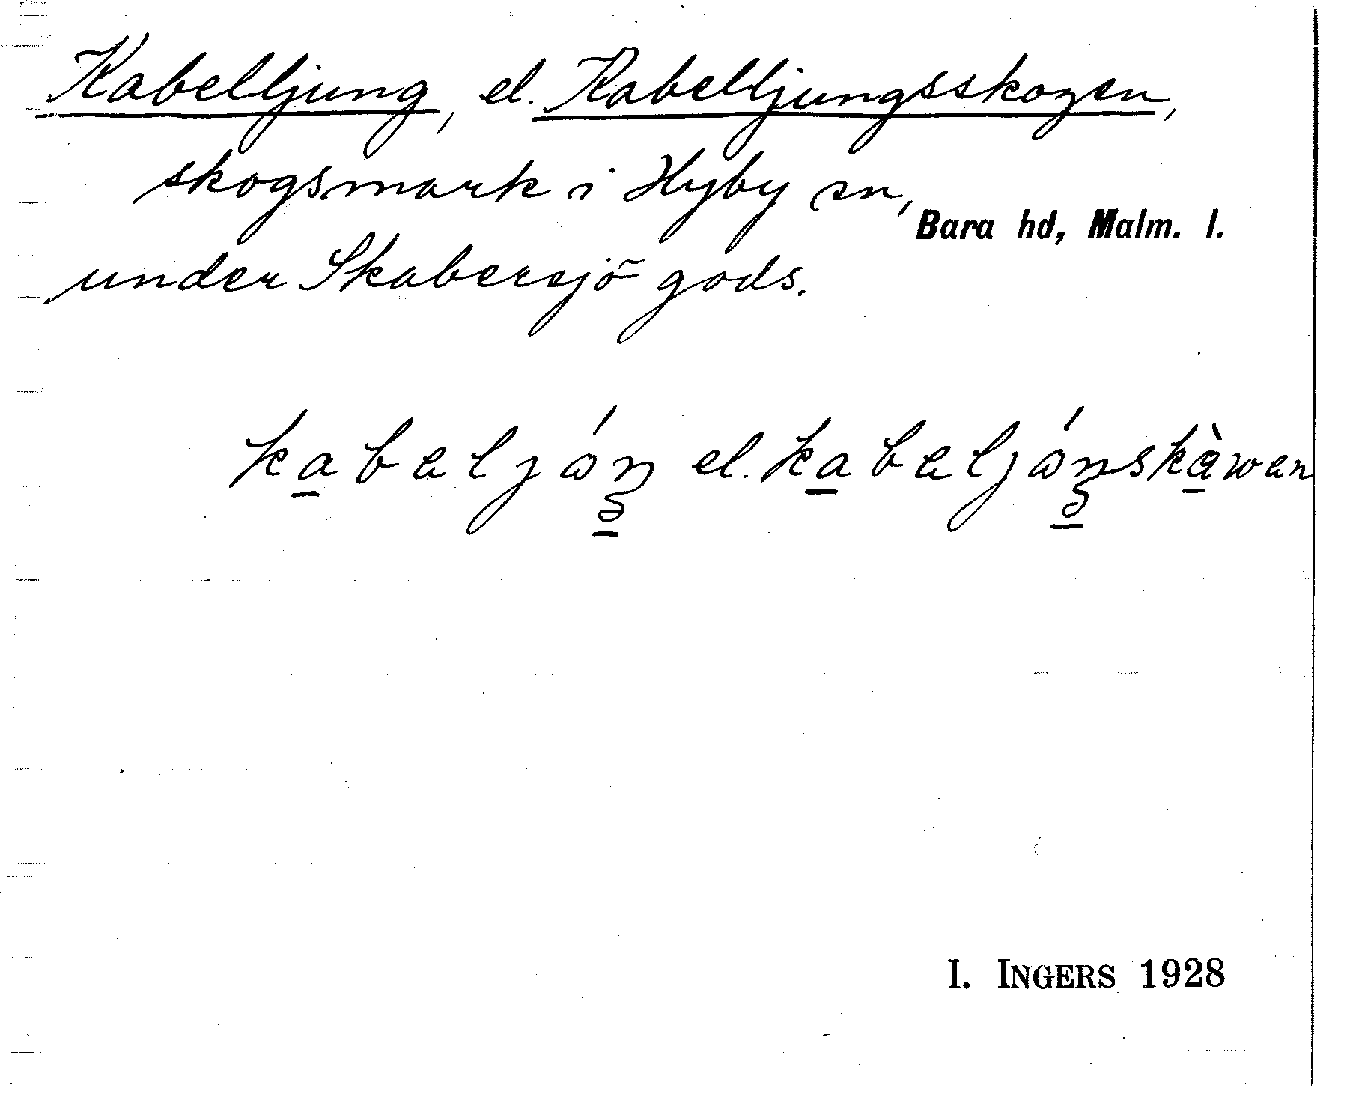 Kabelljung, el. Kabelljungsskogen,
skogsmark i Hyby sn,
Bara hd, Malm. l.
under Skabersjö gods.
kabeljóŋ el. kabeljóŋskàwen
I. INGERS 1928